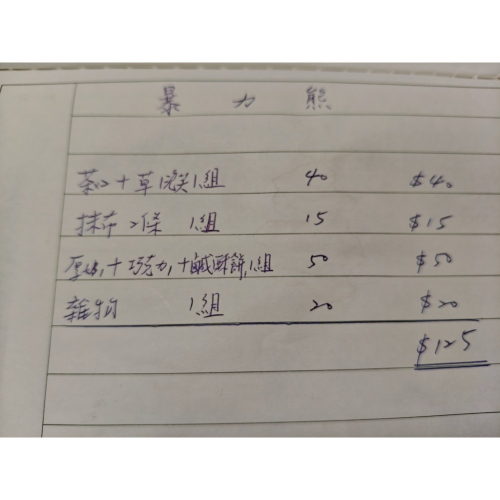 暴 力 熊
茶包+草 1組 40 $40
抹布 2條 1組 15 $15
+巧克力,+鹹酥餅,1組 50 $50
雜物 1組 20 $20
$125